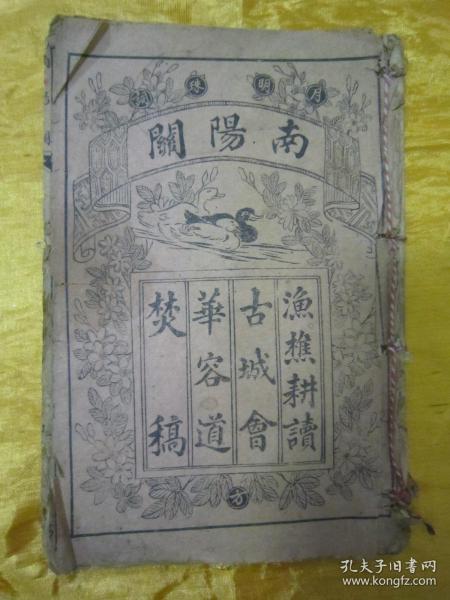 月明珠
南陽關
漁樵耕讀
古城會
華容道
焚稿
孔夫子旧书网
www.kongfz.com